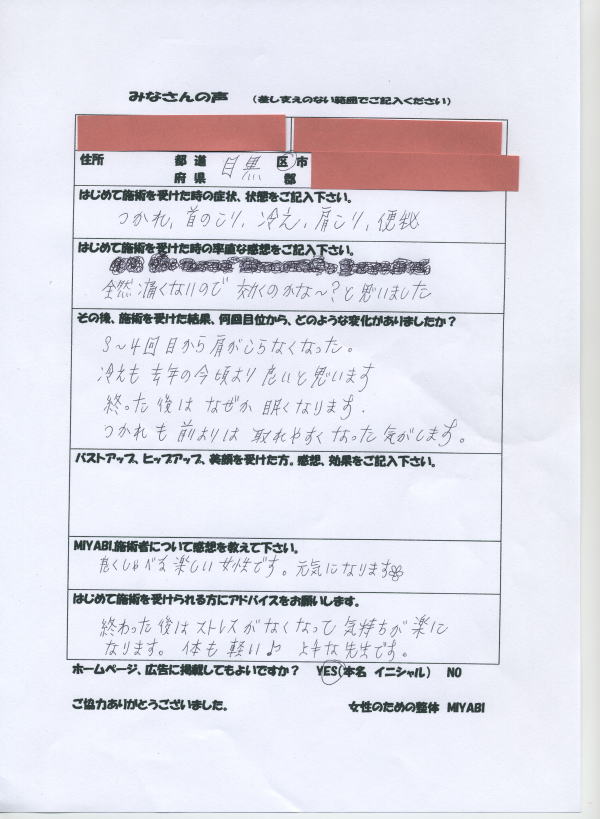 みなさんの声 (差し支えのない範囲でご記入ください)
住所 都道府県 目黒 区市郡
はじめて施術を受けた時の症状、状態をご記入下さい。
つかれ、首のこり、冷え、肩こり、便秘
はじめて施術を受けた時の率直な感想をご記入下さい。
全然痛くないので効くのかな〜?と思いました
その後、施術を受けた結果、何回目位から、どのような変化がありましたか?
3〜4回目から肩がこらなくなった。
冷えも去年の今頃より良いと思います
終った後はなぜか眠くなります.
つかれも前よりは取れやすくなった気がします。
バストアップ、ヒップアップ、美顔を受けた方。感想、効果をご記入下さい。
MIYABI.施術者について感想を教えて下さい。
良くしゃべる楽しい女性です。元気になります
はじめて施術を受けられる方にアドバイスをお願いします。
終わった後はストレスがなくなって気持ちが楽に
なります。体も軽い♪ 上手な先生です。
ホームページ、広告に掲載してもよいですか? YES(本名 イニシャル) NO
ご協力ありがとうございました。 女性のための整体 MIYABI